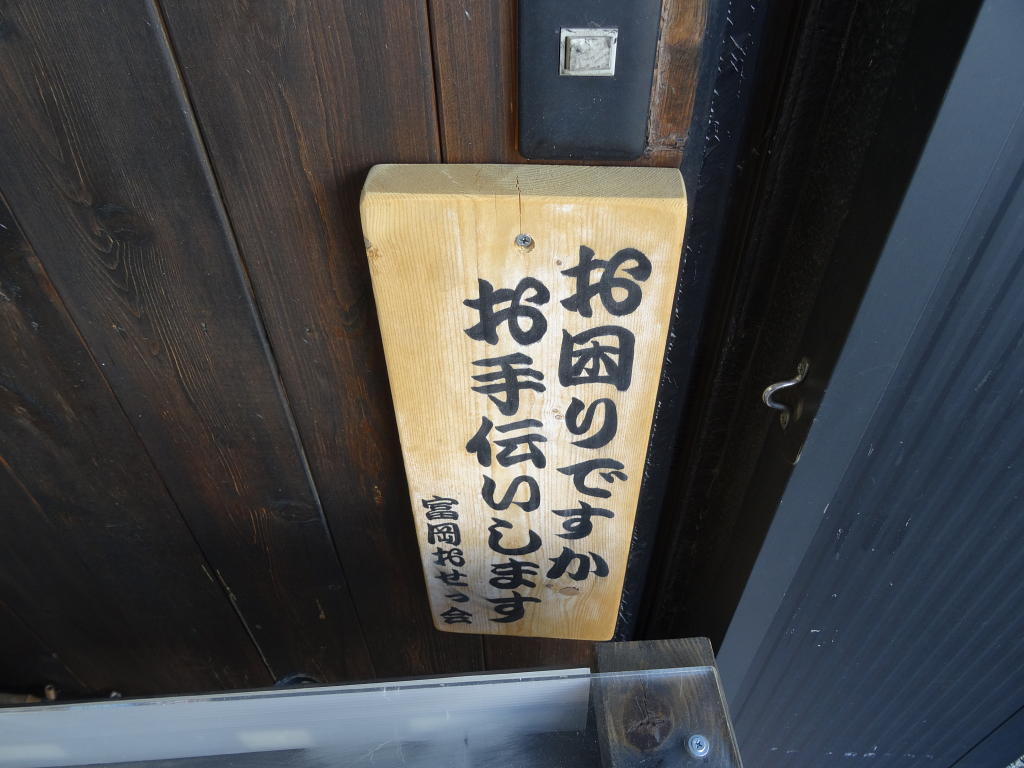 お困りですか
お手伝いします
富岡おせっ会